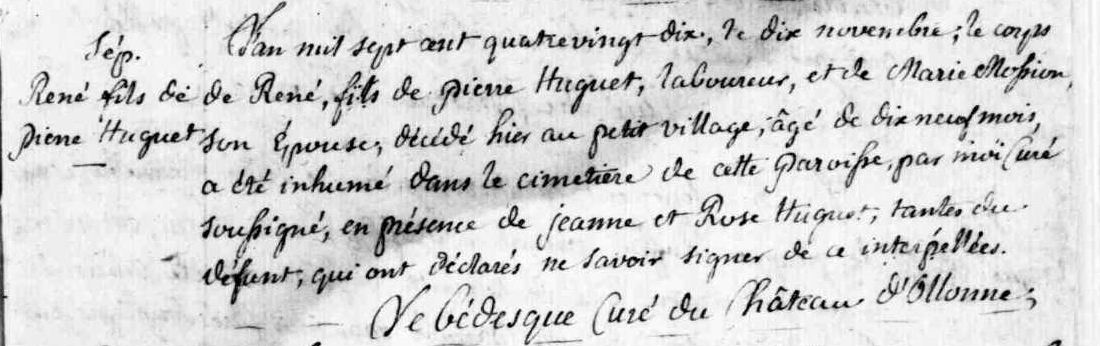 Sép.
René fils de
pierre Huguet
L'an mil sept cent quatrevingt dix, le dix novembre; le corps
de René, fils de pierre Huguet, laboureur, et de Marie Mossion,
son Épouse, décédé hier au petit village, âgé de dix neuf mois,
a été inhumé dans le cimetière de cette Paroisse, par moi Curé
soussigné, en présence de jeanne et Rose Huguet, tantes du
défunt, qui ont déclarés ne savoir signer de ce interpellées.
Le bédesque Curé du Château d'Ollonne;